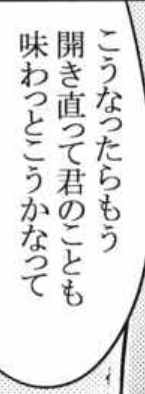 こうなったらもう
開き直って君のことも
味わっとこうかなって